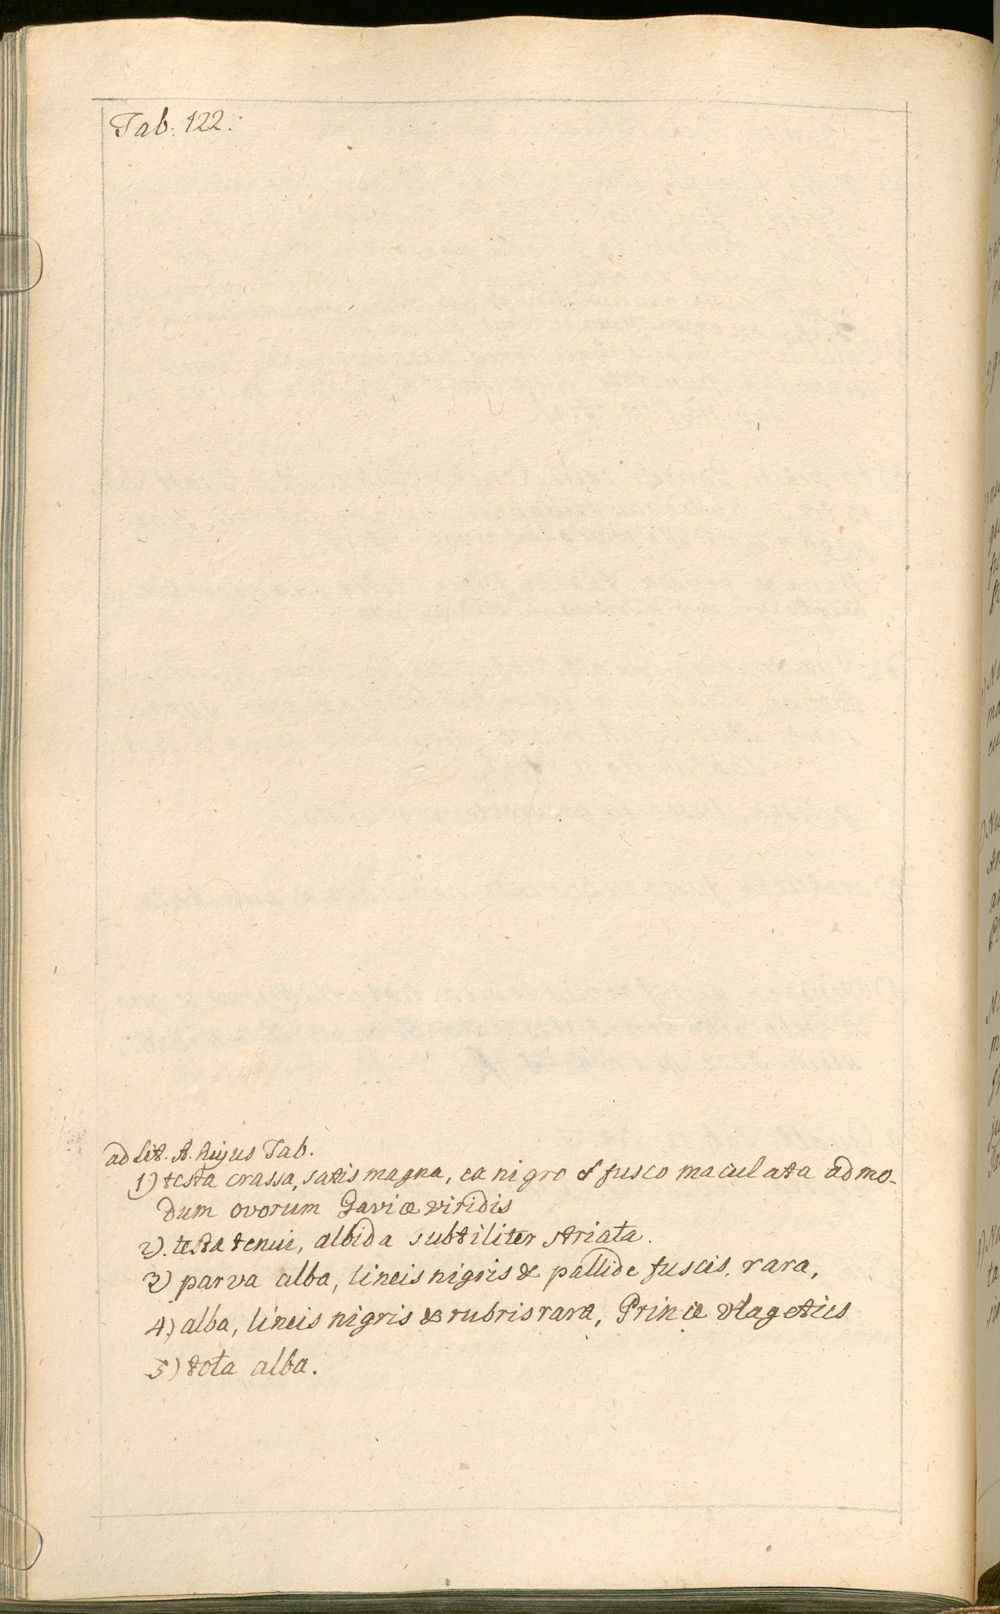 Tab. 122.
ad Lit. A. hujus Tab.
1) testa crassa, satis magna, ex nigro & fusco maculata ad mo-
dum ovorum Gaviæ viridis
2). testa tenui, albida subtiliter striata.
3) parva alba, lineis nigris & pallide fuscis. rara,
4) alba, lineis nigris & rubris rara,
5) tota alba.